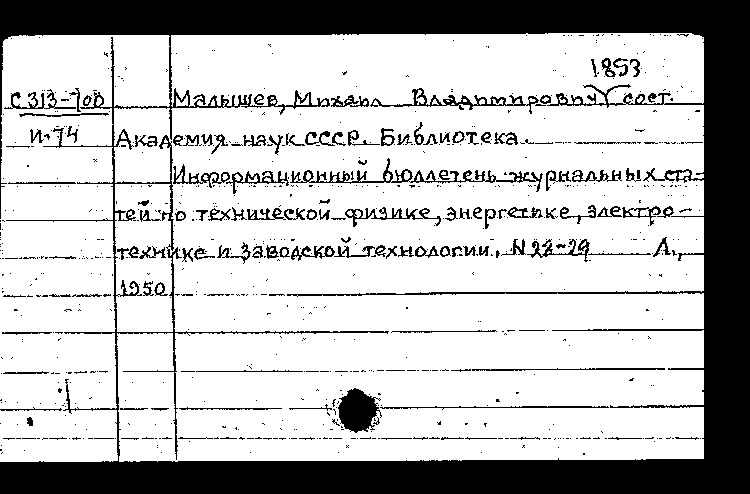 1893
С 313-70В Малышев, Михаил Владимирович сост.
И-74 Академия наук СССР. Библиотека.
Информационный бюллетень журнальных ста-
тей по технической физике, энергетике, электро-
технике и заводской технологии. N 23-29 Л.,
1950